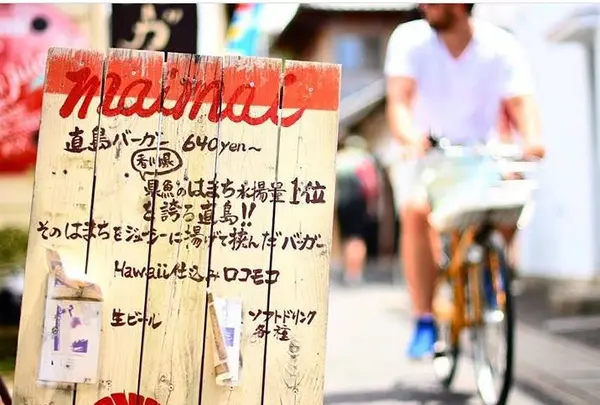 maimai
直島バーガー 640yen～
香川県
県魚のはまち水揚量1位
を誇る直島!!
そのはまちをジューシーに揚げて挟んだバーガー
Hawaii仕込みロコモコ
生ビール
ソフトドリンク
各種